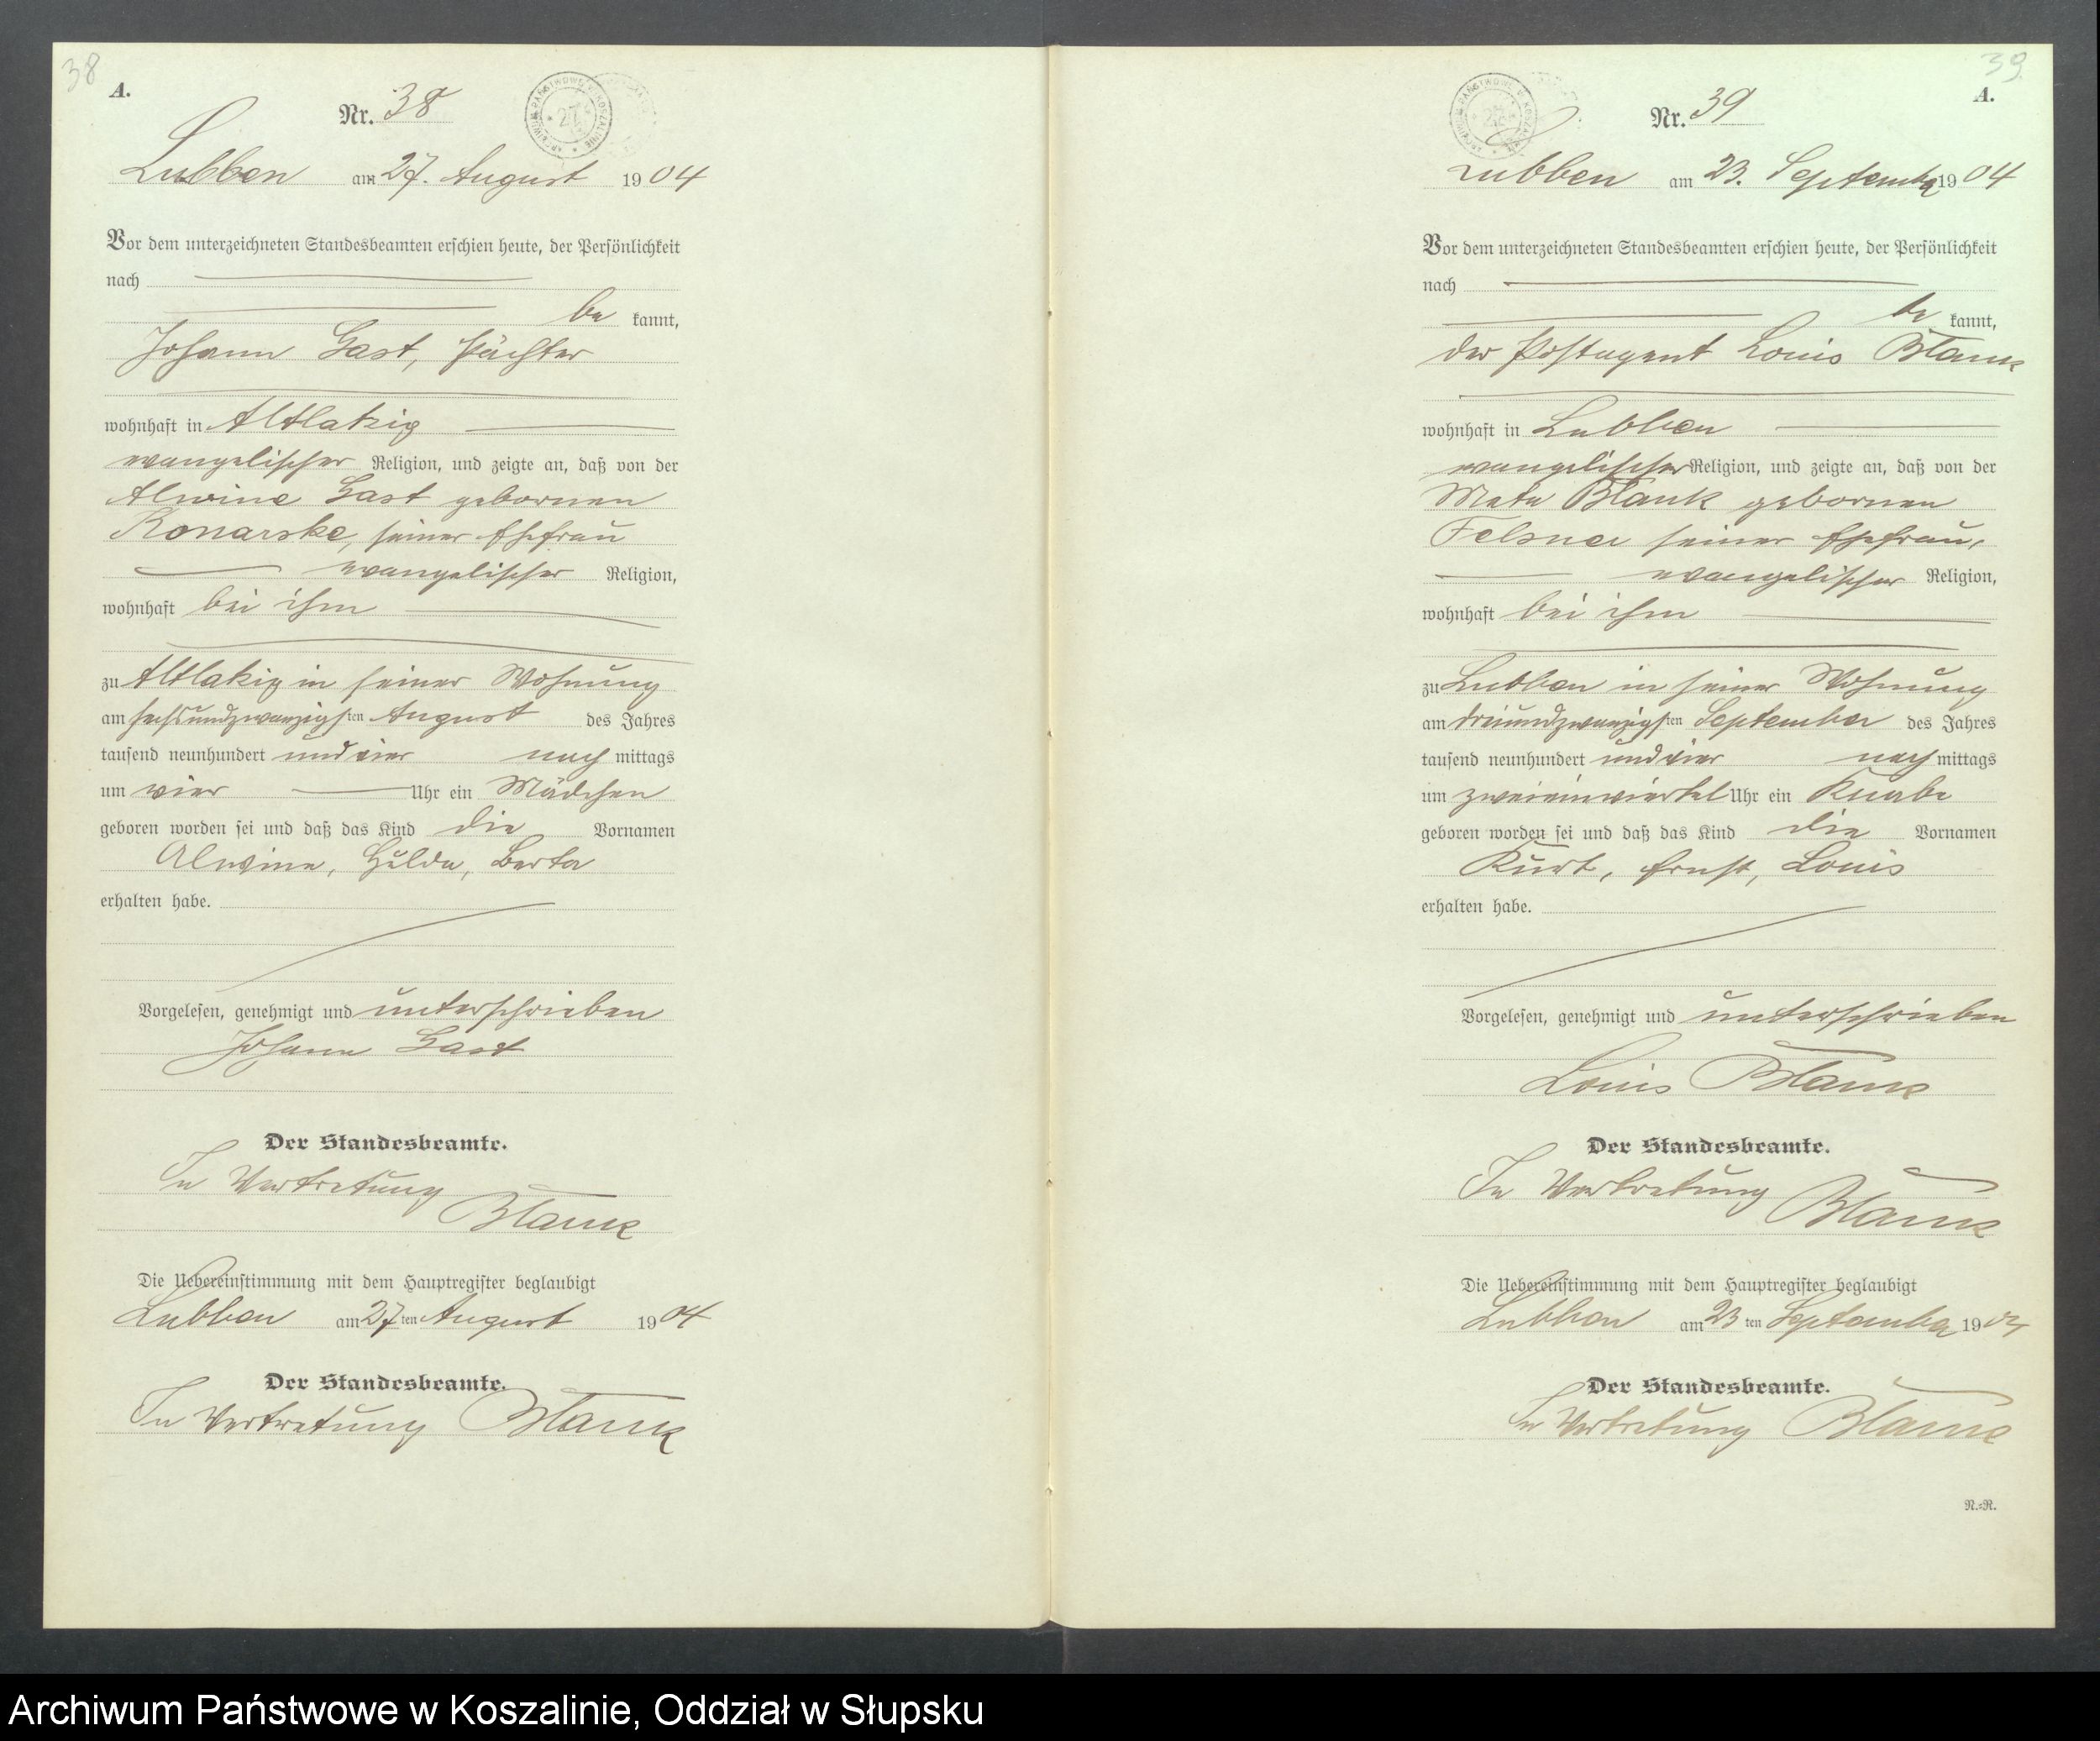 38
A.
Nr. 38
Lubben am 27. August 1904
Vor dem unterzeichneten Standesbeamten erschien heute, der Persönlichkeit
nach
be kannt,
Johann Gast, Pächter
wohnhaft in Altlakzig
evangelischer Religion, und zeigte an, daß von der
Alwine Gast gebornen
Konarske, seiner Ehefrau
evangelischer Religion,
wohnhaft bei ihm
zu Altlakzig in seiner Wohnung
am sechsundzwanzigsten August des Jahres
tausend neunhundert und vier nach mittags
um vier Uhr ein Mädchen
geboren worden sei und daß das Kind die Vornamen
Alwine, Hulda, Berta
erhalten habe.
Vorgelesen, genehmigt und unterschrieben
Johann Gast
Der Standesbeamte.
In Vertretung
Blank
Die Uebereinstimmung mit dem Hauptregister beglaubigt
Lubben am 27 ten August 1904
Der Standesbeamte.
In Vertretung Blank
39
A.
Nr. 39
Lubben am 23. September 1904
Vor dem unterzeichneten Standesbeamten erschien heute, der Persönlichkeit
nach
be kannt,
der Postagent Louis Blank
wohnhaft in Lubben
evangelischer Religion, und zeigte an, daß von der
Meta Blank gebornen
Felsner seiner Ehefrau,
evangelischer Religion,
wohnhaft bei ihm
zu Lubben in seiner Wohnung
am dreiundzwanzigsten September des Jahres
tausend neunhundert und vier nach mittags
um zweieinviertel Uhr ein Knabe
geboren worden sei und daß das Kind die Vornamen
Kurt, Ernst, Louis
erhalten habe.
Vorgelesen, genehmigt und unterschrieben
Louis Blank
Der Standesbeamte.
In Vertretung Blank
Die Uebereinstimmung mit dem Hauptregister beglaubigt
Lubben am 23 ten September 1904
Der Standesbeamte.
In Vertretung Blank
N.=R.
Archiwum Państwowe w Koszalinie, Oddział w Słupsku